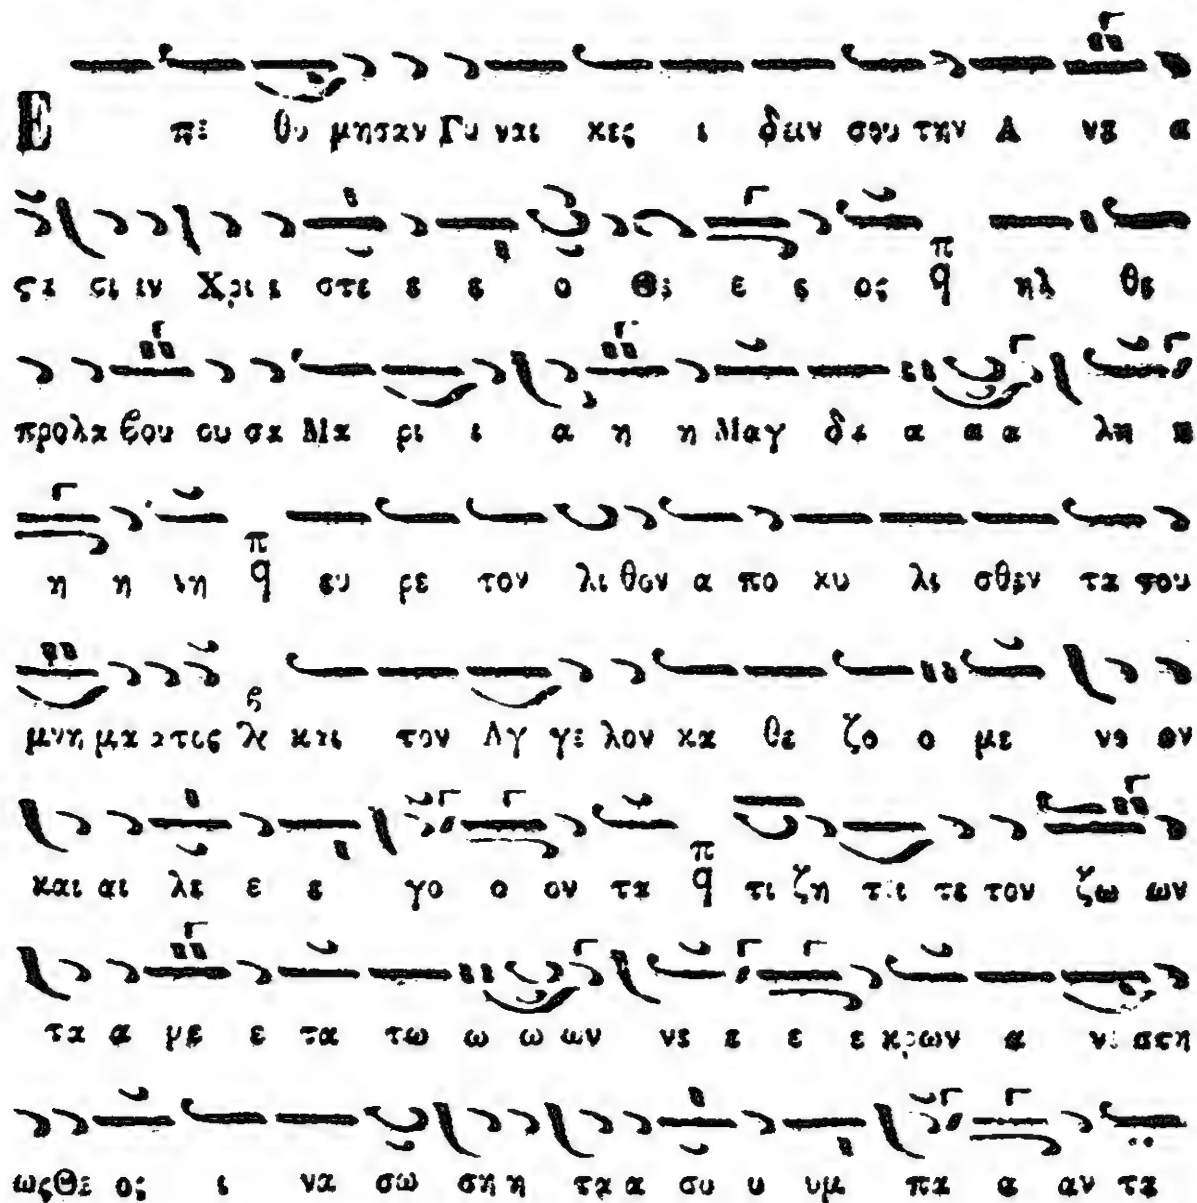 Ε πε θυ μησαν Γυ ναι κες ι δειν σου την Α να α
στα σι ιν Χρι ι στε ε ε ο Θε ε ε ος π q ηλ θε
προλα βου ου σα Μα ρι ι α η η Μαγ δα α α α λη η
η η νη π q ευ ρε τον λι θον α πο κυ λι σθεν τα του
μνη μα α τος και τον Αγ γε λον κα θε ζο ο με νο ον
και αι λε ε ε γο ο ον τα π q τι ζη τει τε τον ζω ων
τα α με ε τα τω ω ω ων νε ε ε ε κρων α νε στη
ως Θε ος ι να σω ση η τα α συ υ υμ πα α αν τα